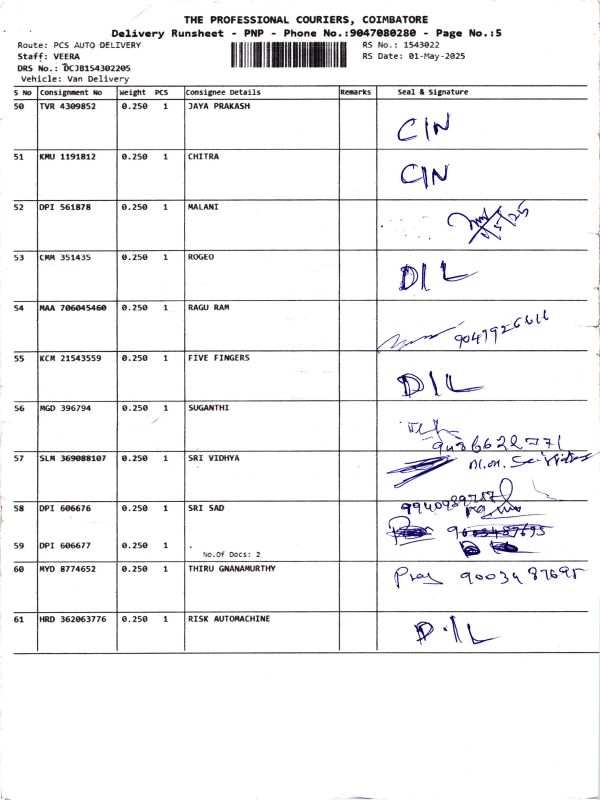 THE PROFESSIONAL COURIERS, COIMBATORE
Delivery Runsheet - PNP - Phone No.:9047080280 - Page No.:5
Route: PCS AUTO DELIVERY RS No.: 1543022
Staff: VEERA RS Date: 01-May-2025
DRS No.: DCJB154302205
Vehicle: Van Delivery
S No Consignment No Weight PCS Consignee Details Remarks Seal & Signature
50 TVR 4309852 0.250 1 JAYA PRAKASH
CIN
51 KMU 1191812 0.250 1 CHITRA
CIN
52 DPI 561878 0.250 1 MALANI
1/5/25
53 CMM 351435 0.250 1 ROGEO
DIL
54 MAA 706045460 0.250 1 RAGU RAM
9047926616
55 KCM 21543559 0.250 1 FIVE FINGERS
DIL
56 MGD 396794 0.250 1 SUGANTHI
9486622771
57 SLM 369088107 0.250 1 SRI VIDHYA
58 DPI 606676 0.250 1 SRI SAD
59 DPI 606677 0.250 1 .
No.Of Docs: 2
60 MYD 8774652 0.250 1 THIRU GNANAMURTHY
9003487695
61 HRD 362063776 0.250 1 RISK AUTOMACHINE
D.IL